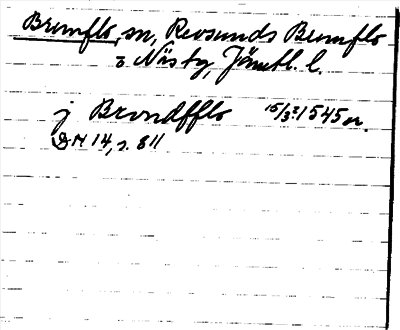 Brunflo, sn, Revsunds Brunflo
o Näs tg, Jämtl. l.
j Brondfflo 15/3 1545 or.
DN 14, s. 811